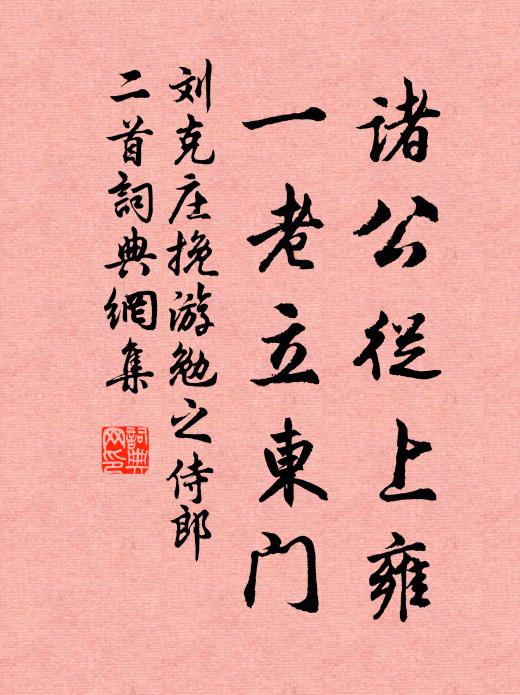 諸公從上雍
一老立東門
刘克庄挽游勉之侍郎
二首詞典網集
詞典
网印